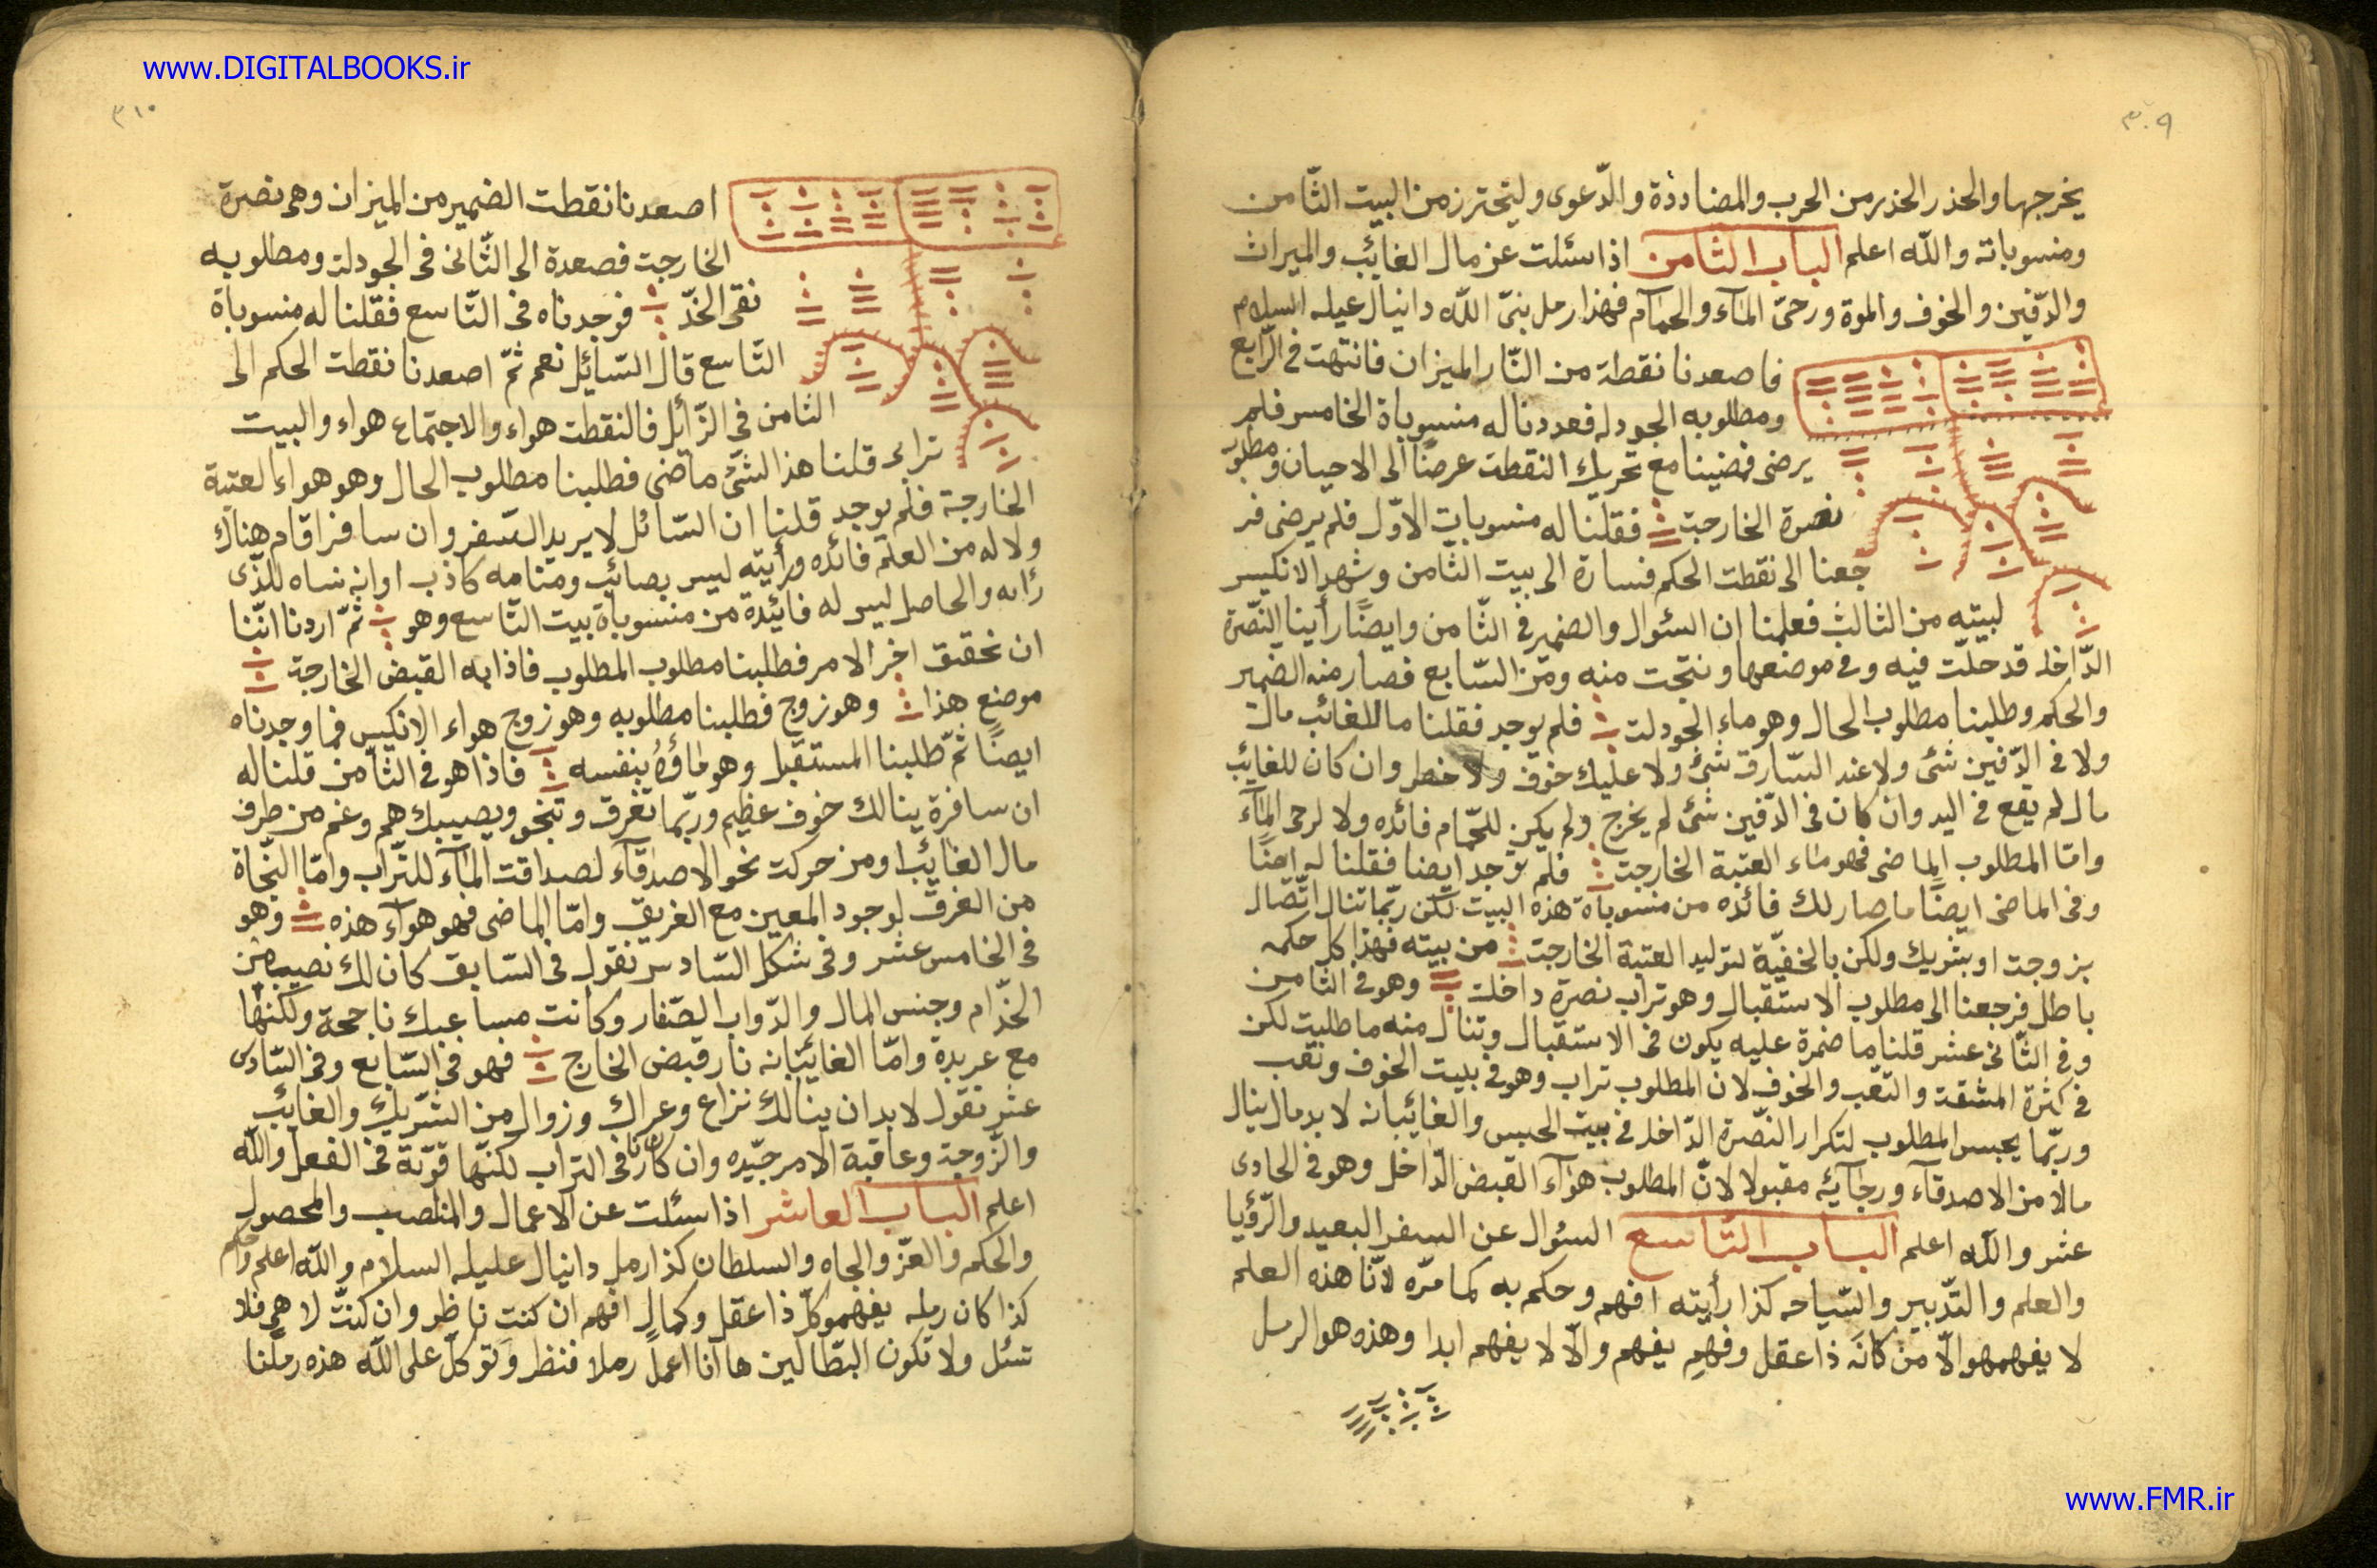 www.DIGITALBOOKS.ir
٣٠٩
يخرجها والحذر الحذر من الحرب والمضاددة والدّعوى وليحترز من البيت الثّامن
ومنسوباته واللّه اعلم الباب الثامن اذا سئلت عن مال الغائب والميراث
والدّفين والخوف والموة ورحىّ المآء والحمّام فهذا رمل بنىّ اللّه دانيال عيله السلام
فاصعدنا نقطة من النّار الميزان فانتهت فى الرّابع
ومطلوبه الجودله فعددنا له منسوباة الخامس فلم
يرضى فمضينا مع تحريك النقطت عرضًا الى الاحيان ومطلوبه
نصرة الخارجت فقلنا له منسوبات الاوّل فلم يرضى فر
جعنا الى نقطت الحكم فسارة الى بيت الثامن وشهد الانكيس
لبيته من الثالث فعلمنا ان السئوال والضمير فى الثّامن وايضًا رأينا النّصرة
الدّاخل قد حلّت فيه وفى موضعها ونتجت منه ومن السّابع فصار منه الضمير
والحكم وطلبنا مطلوب الحال وهو ماء الجودلت فلم يوجد فقلنا ما للغائب مال
ولا فى الدّفين شئ ولا عند السّارق شئ ولا عليك خوف ولا خطر وان كان للغايب
مال لم يقع فى اليد وان كان فى الدّفين شئ لم يخرج ولم يكن للحمّام فائده ولا لرحى المآء
وامّا المطلوب الماضى فهو ماء العتبة الخارجت فلم يوجد ايضا فقلنا له ايضًا
وفى الماضى ايضًا ما صار لك فائده من منسوباة هذه البيت لكن ربّما تنال اتّصال
بزوجت او بشريك ولكن بالخفيّة لتوليد العتبة الخارجت من بيته فهذا كل حكمه
باطل فرجعنا الى مطلوب الاستقبال وهو تراب نصرة داخلت وهو فى الثامن
وفى الثّانى عشر قلنا ما ضمرة عليه يكون فى الاستقبال وتنال منه ما طلبت لكن
فى كثرة المشقت والتعب والخوف لان المطلوب تراب وهو فى بيت الخوف وتعب
وربّما يحبس المطلوب لتكرار النّصرة الدّاخل فى بيت الحبس والغائبانه لا بد مال ينال
مالا من الاصدقآء ورجآئه مقبولا لانّ المطلوب هوآء القبض الدّاخل وهو فى الحادى
عشر واللّه اعلم الباب التّاسع السئوال عن السفر البعيد والرّؤيا
والعلم والتدّبير والسّياحه كذا رأيته افهم وحكم به كما مرّه لانّا هذه العلم
لا يفهمهو الّا من كانَه ذا عقل وفهم يفهم والّا لا يفهم ابدا وهذه هو الرمل
٣١٠
اصعدنا نقطت الضمير من الميزان وهى نصرة
الخارجت فصعدة الى الثّانى فى الجودلت ومطلوبه
نقى الخدّ فوجدناه فى التّاسع فقلنا له منسوباة
التّاسع قال السّائل نعم ثمّ اصعدنا نقطت الحكم الى
الثامن فى الزّائل فالنقطت هواء والاجتماع هواء والبيت
تراب قلنا هذا الشئ ماضى فطلبنا مطلوب الحال وهو هواء العتبة
الخارجة فلم يوجد قلنا ان السّائل لا يريد السّفر وان سافر اقام هناك
ولا له من العلم فائده ورأيته ليس بصائب ومنامه كاذب او انه نساه للذّى
رأه والحاصل ليس له فائيدة من منسوباة بيت التّاسع وهو ثمّ اردنا انّنا
ان نحقق اخر الامر فطلبنا مطلوب المطلوب فاذا به القبض الخارجت
موضع هذا وهو زوج فطلبنا مطلوبه وهو زوج هواء الانكيس فما وجدناه
ايضًا ثمّ طلبنا المستقبل وهو ماؤه بنفسه فاذا هو فى الثامن قلنا له
ان سافرة ينالك خوف عظيم وربّما تغرق وتنجو ويصيبك هم وغم من طرف
مال الغائب ومن حركت نحو الاصدقآء لصداقت المآء للتّراب وامّا النّجاة
من الغرق لوجود المعين مع الغريق وامّا الماضى فهو هوآء هذه وهو
فى الخامس عشر وفى شكل السّادس نقول فى السّابق كان لك نصيب من
الخدّام وجنس المال والدّواب الصّغار وكانت مساعيك ناجحة ولكنها
مع عربدة وامّا الغائبانه نار قبض الخارج فهو فى السّابع وفى السّادى
عشر نقول لا بد ان ينالك نزاع وعراك وزوال من الشّريك والغائب
والزّوجة وعاقبة الامر جيّده وان كان نارًا فى التراب لكنّها قوّتة فى الفعل واللّه
اعلم الباب العاشر اذا سئلت عن الاعمال والمناصب والمحصول
والحكم والعزّ والجاه والسلطان كذا رمل دانيال عليله السلام واللّه اعلم وحكم
كذا كان رمله يفهمو كلّ ذا عقل وكمال افهم ان كنت ناظر وان كنتّ لا هى فلا
تسئل ولا تكون البطّالين ها انا اعملً رملا فنظر وتوكلّ على اللّه هذه رملنا
www.FMR.ir